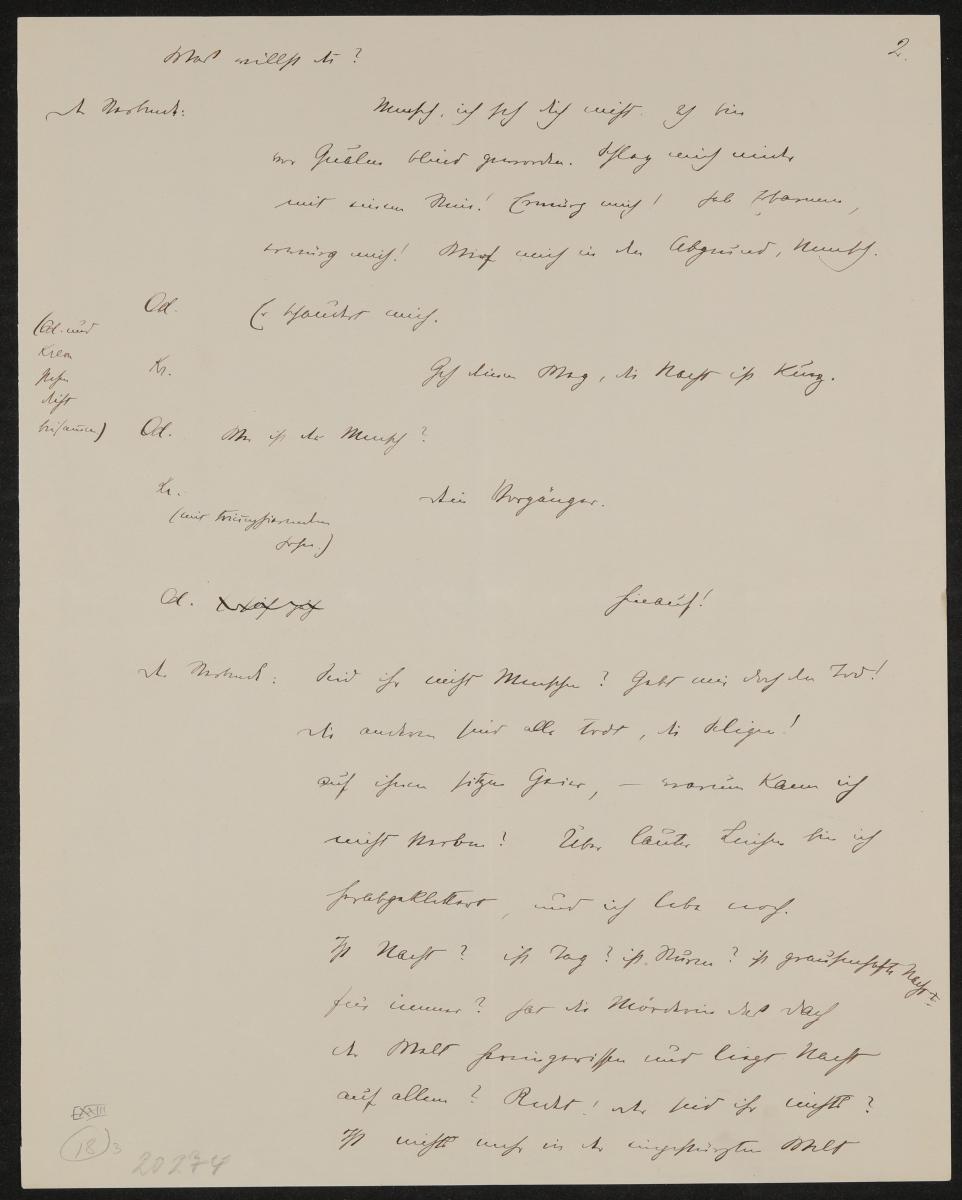 2.
Was willst du?
Der Sterbende: Mensch, ich seh dich nicht. Ich bin
vor Qualen blind geworden. Schlag mich nieder
mit einem Stein! Erwürg mich! hab Erbarmen,
erwürg mich! Wirf mich in den Abgrund, Mensch.
Od. Er schaudert mich.
(Od. und
Kreon
stehen
dicht
beisammen)
Kr. Geh deinen Weg, die Nacht ist kurz.
Od. Wer ist der Mensch?
Kr. Dein Vorgänger.
(mit triumphierendem
Hohn.)
Od. hinauf!
Der Sterbende: Seid ihr nicht Menschen? Gebt mir doch den Tod!
die anderen sind alle todt, die Seligen!
auf ihnen sitzen Geier, – warum kann ich
nicht sterben? Über lauter Leichen bin ich
herabgeklettert, und ich lebe noch.
Ist Nacht? ist Tag? ist Sturm? ist grausenhafte Nacht
für immer? hat die Mörderin das Dach
der Welt hereingerissen und liegt Nacht
auf allem? Redet! oder seid ihr nichts?
Ist nichts mehr in der eingestürzten Welt
EXVIII
18 3
20274